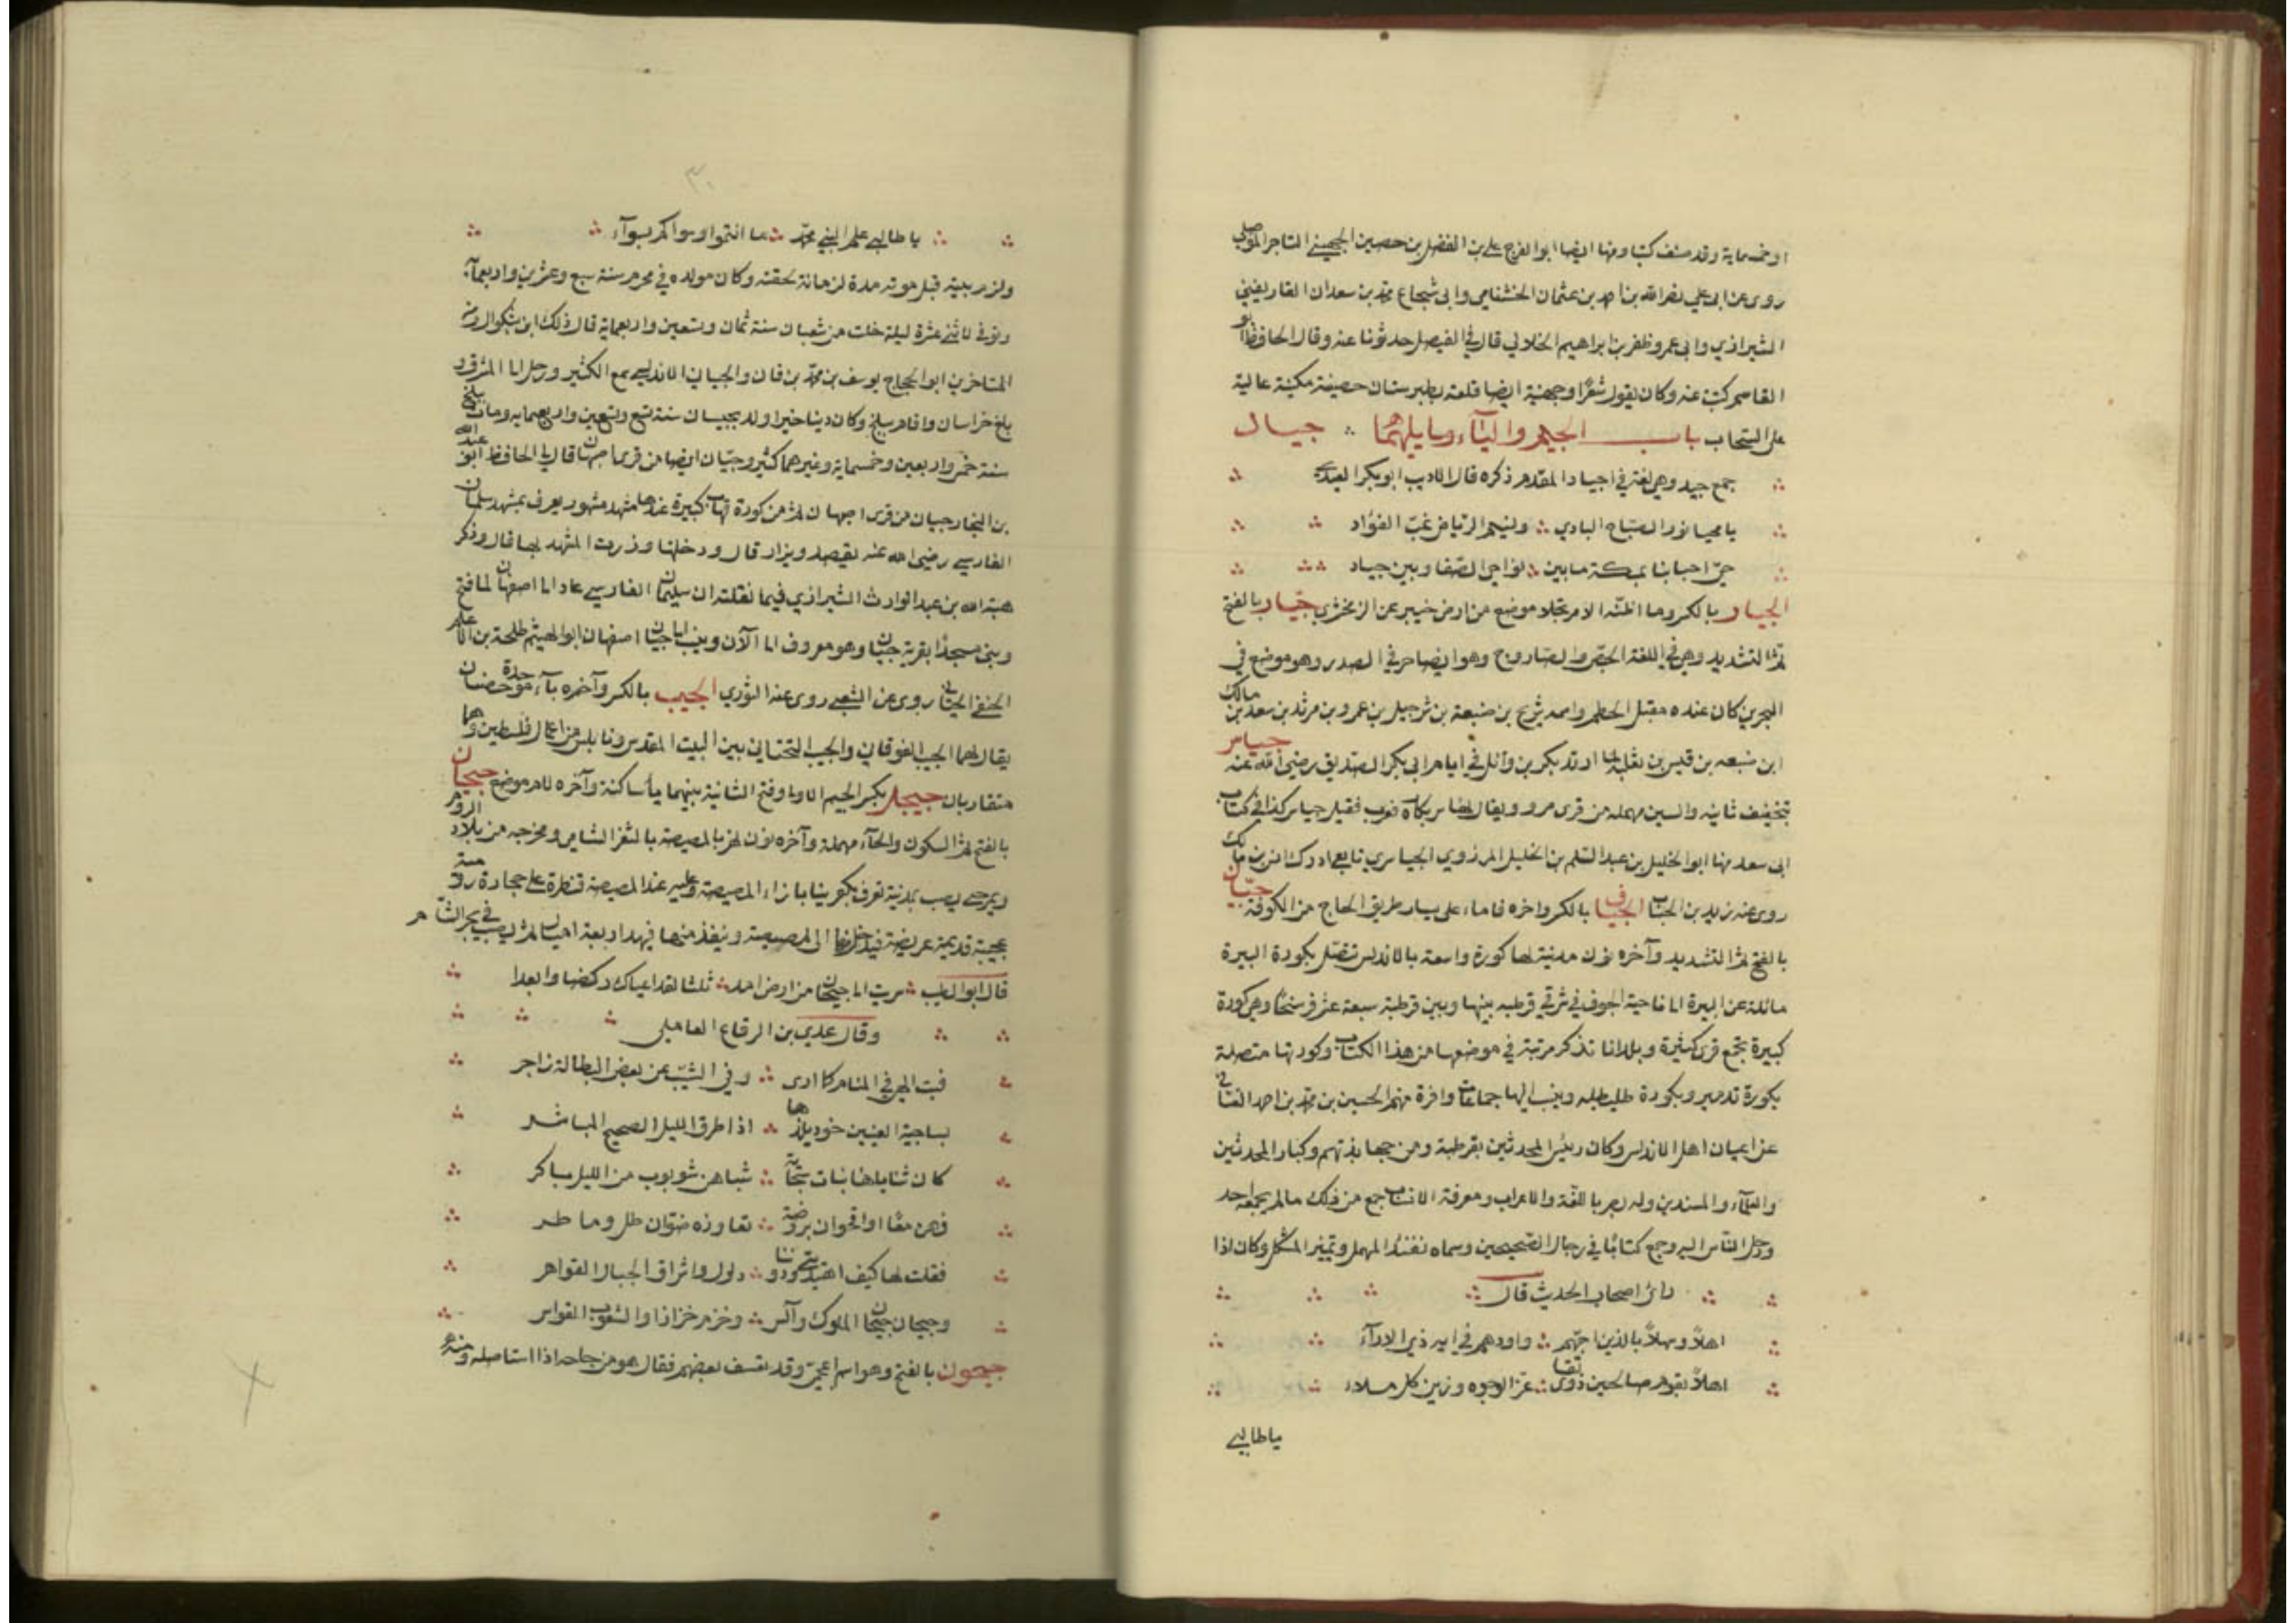 او خمسماية وقد صنف كتبا ومنها ايضا ابو الفرج علي بن الفضل بن حصين الجهيني التاجر الموصلي
روى عن ابي علي نصر الله بن احمد بن عثمان الخشنامي وابي شجاع محمد بن سعدان المقاريضي
الشيرازي وابي عمرو ظفر بن ابراهيم الخلالي قال في الفيصل حدثونا عنه وقال الحافظ ابو
القاسم كتبت عنه وكان يقول شعرًا وجهينة ايضا قلعة بطبرستان حصينة مكينة عالية
على السحاب باب الجيم والياء وما يليهما جيال
جمع جيد وهي لغة في اجياد المقدم ذكره قال الاديب ابو بكر العبدي
يا محيا نور الصباح البادي ونسيم الرياض غب الفؤاد
حي احبابنا بمكة ما بين نواحي الصفا وبين جياد
الجيار بالكسر وما اظنه الا مرتجلا موضع من ارض خيبر عن الزمخشري جيار بالفتح
ثم التشديد وهي في اللغة الجص والصاروج وهو ايضا حر في الصدر وهو موضع في
البحرين كان عنده مقتل الحطم واسمه شريح بن ضبيعة بن شرحبيل بن عمرو بن مرثد بن سعد بن مالك
ابن ضبيعه بن قيس بن ثعلبة لما ارتد بكر بن وائل في ايام ابي بكر الصديق رضي الله عنه جياس
بتخفيف ثانيه والسين مهمله من قرى مرو ويقال لها سر بكاه فعرب فقيل جياسر كذا في كتاب
ابي سعد منها ابو الخليل بن عبد السلم بن الخليل المرزوي الجياسري تابعي ادرك انس بن مالك
روى عنه زيد بن الحباب الجياف بالكسر واخره فا ماء على يسار طريق الحاج من الكوفة جيان
بالفتح ثم التشديد وآخره نون مدينة لها كورة واسعة بالاندلس تتصل بكورة البيرة
مائلة عن البيرة الى ناحية الجوف في شرقي قرطبه بينها وبين قرطبة سبعة عشر فرسخًا وهي كورة
كبيرة تجمع قرى كثيرة وبلدانا تذكر مرتبة في موضعها من هذا الكتاب وكورتها متصلة
بكورة تدمير وبكورة طليطله وينسب اليها جماعات وافرة منهم الحسين بن محمد بن احمد الغساني
عن اعيان اهل الاندلس وكان رئيس المحدثين بقرطبة ومن جهابذتهم وكبار المحدثين
والعلماء والمسندين وله بصر باللغة والاعراب ومعرفة الانساب جمع من ذلك ما لم يجمعه احد
ورحل الناس اليه وجمع كتابًا في رجال الصحيحين وسماه تقييد المهمل وتمييز المشكل وكان اذا
رائ اصحاب الحديث قال
اهلاً وسهلاً بالذين احبهم واودهم في الله ذي الالاء
اهلاً بقوم صالحين ذوى تقا غر الوجوه وزين كل ملاء
ياطالبي
٣٠
ياطالبي علم النبي محمد ما انتم وسواكم بسوآء
ولزم بيته قبل موته مدة لزمانة لحقته وكان مولده في محرم سنة سبع وعشرين واربعمآة
وتوفي لاثني عشرة ليلة خلت من شعبان سنة ثمان وتسعين واربعماية قال ذلك ابن بشكوال ومن
المتاخرين ابو الحجاج يوسف بن محمد بن فان والجياني الاندلسي سمع الكثير ورحل الى المشرق و
بلغ خراسان واقام ببلخ وكان دينا خيرا ولد بجيسان سنة تسع وتسعين واربعمايه ومات ببلخ
سنة خمس واربعين وخمسماية وغيرهما كثير وجيان ايضا من قرى اصبهان قال لي الحافظ ابو عبد الله
بن النجار جيان من قرى اصبهان ثم من كورة قهاب كبيرة عندها مشهد مشهور يعرف بمشهد سلمان
الفارسي رضي الله عنه يقصد ويزار قال ودخلتها وزرت المشهد بها قال وذكر
هبة الله بن عبد الوارث الشيرازي فيما نقلته ان سليمان الفارسي عاد الى اصفهان لما فتح
وبنى مسجدًا بقرية جيان وهو معروف الى الآن وينسب الى جيان اصفهان ابو الهيثم طلحة بن الاعلم
الحنفي الجياني روى عن الشعبي روى عنه الثوري الجيب بالكسر وآخره بآء موحدة حصنان
يقال لهما الجيب الفوقاني والجيب التحتاني بين البيت المقدس ونابلس من اعمال فلسطين وهما
متقاربان جيجل بكسر الجيم الاولى وفتح الثانية بينهما يآ ساكنة وآخره لام موضع جيحان
بالفتح ثم السكون والحآء مهملة وآخره نون نهر بالمصيصة بالثغر الشامي ومخرجه من بلاد الروم
ويمر حتى يصب بمدينة تعرف بكفربيا بازاء المصيصة وعليه عند المصيصة قنطرة على حجارة رومية
عجيبة قديمة عريضة فيدخلها الى المصيصة وينفذ منها فيمتد اربعة اميال ثم يصب في بحر الشام
قال ابو الطيب سريت الى جيحان من ارض امد ثلثا لقد ادناك ركضا وابعدا
وقال عدي بن الرقاع العاملي
فبت الهى في المنام كما ارى وفي الشيب عن بعض البطالة زاجر
بساجية العينين خود يلذها اذا طرق الليل الصحيح المباشر
كان ثناياها نبات سحابة شباهن شوبوب من الليل باكر
فهن معًا او اقحوان بروضة تعاوره ضوان طل وماطر
فقلت لها كيف اهتديت ودوننا دلوك واشراق الجبال القواهر
وجيحان جيحان الملوك وآلس وخزم خزازا والشعوب القواسر
جيحون بالفتح وهو اسم اعجمي وقد تعسف بعضهم فقال هو من جاحه اذا استاصله ومنه